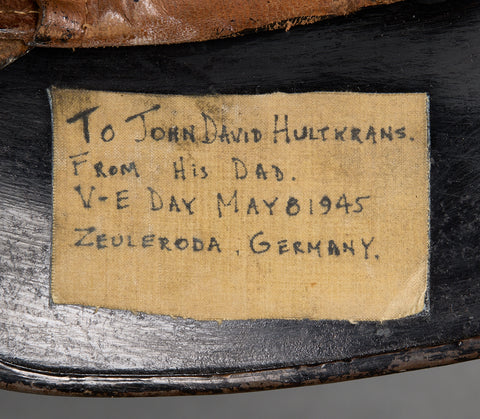 To John David Hultkrans.
From His Dad.
V-E Day May 8 1945
Zeuleroda, Germany.